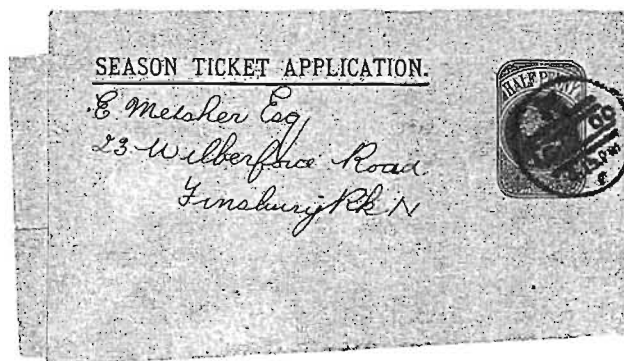 SEASON TICKET APPLICATION.
E Melsher Esq
23 Wilberforce Road
Finsbury Pk N
HALFPENNY